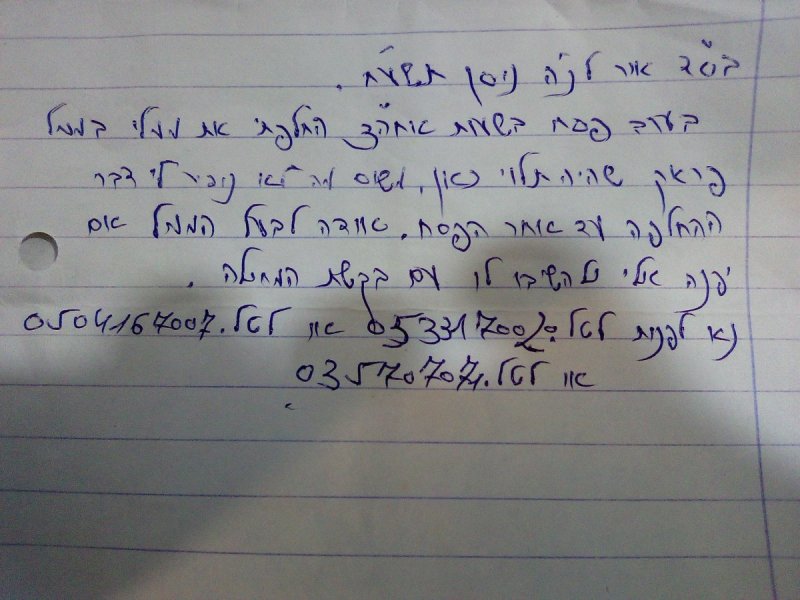 בס"ד אור לכ"ה ניסן תשע"ח.
בערב פסח בשעות אחה"צ החלפתי את מעילי במעיל
פראק שהיה תלוי כאן, משום מה לא ניכר לי דבר
ההחלפה עד אחר הפסח. אודה לבעל המעיל אם
יפנה אלי להשיבו לו עם בקשת המחילה.
נא לפנות לטל. 0533170020 או לטל. 0504167007
או לטל. 035707074